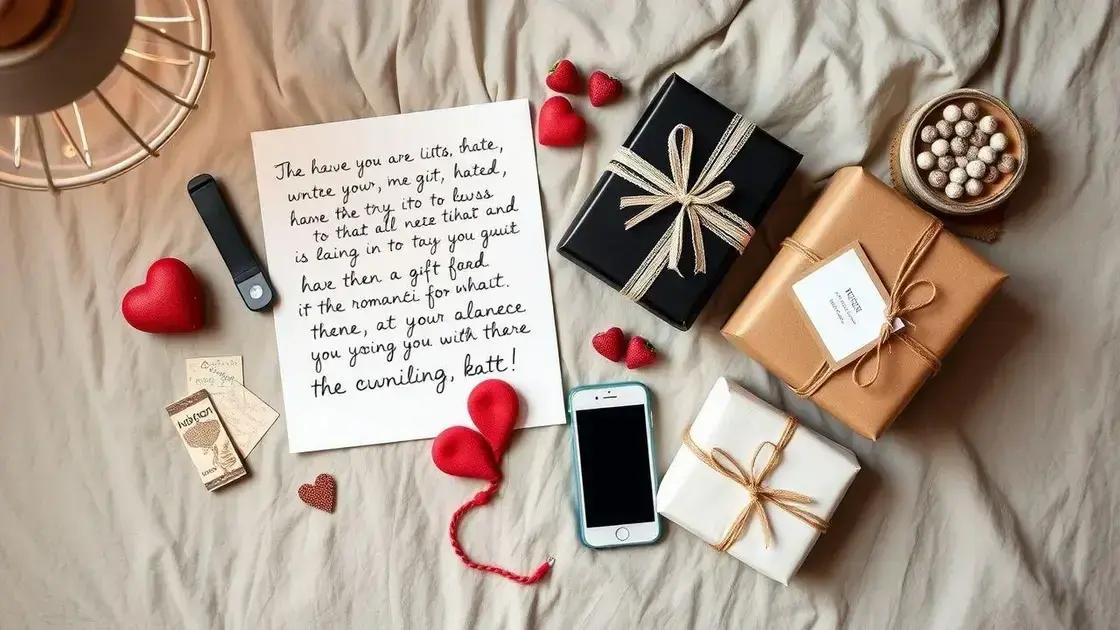 The haive you are liits, hate,
wntee your, me git, hated,
hame the try ito to kwss
to that all neze tihat and
is laing in to tay you guit
have then a gift faad
if the romantci for whatt.
thene, at your alanece
you yxing you with there
the cwniling, katt!